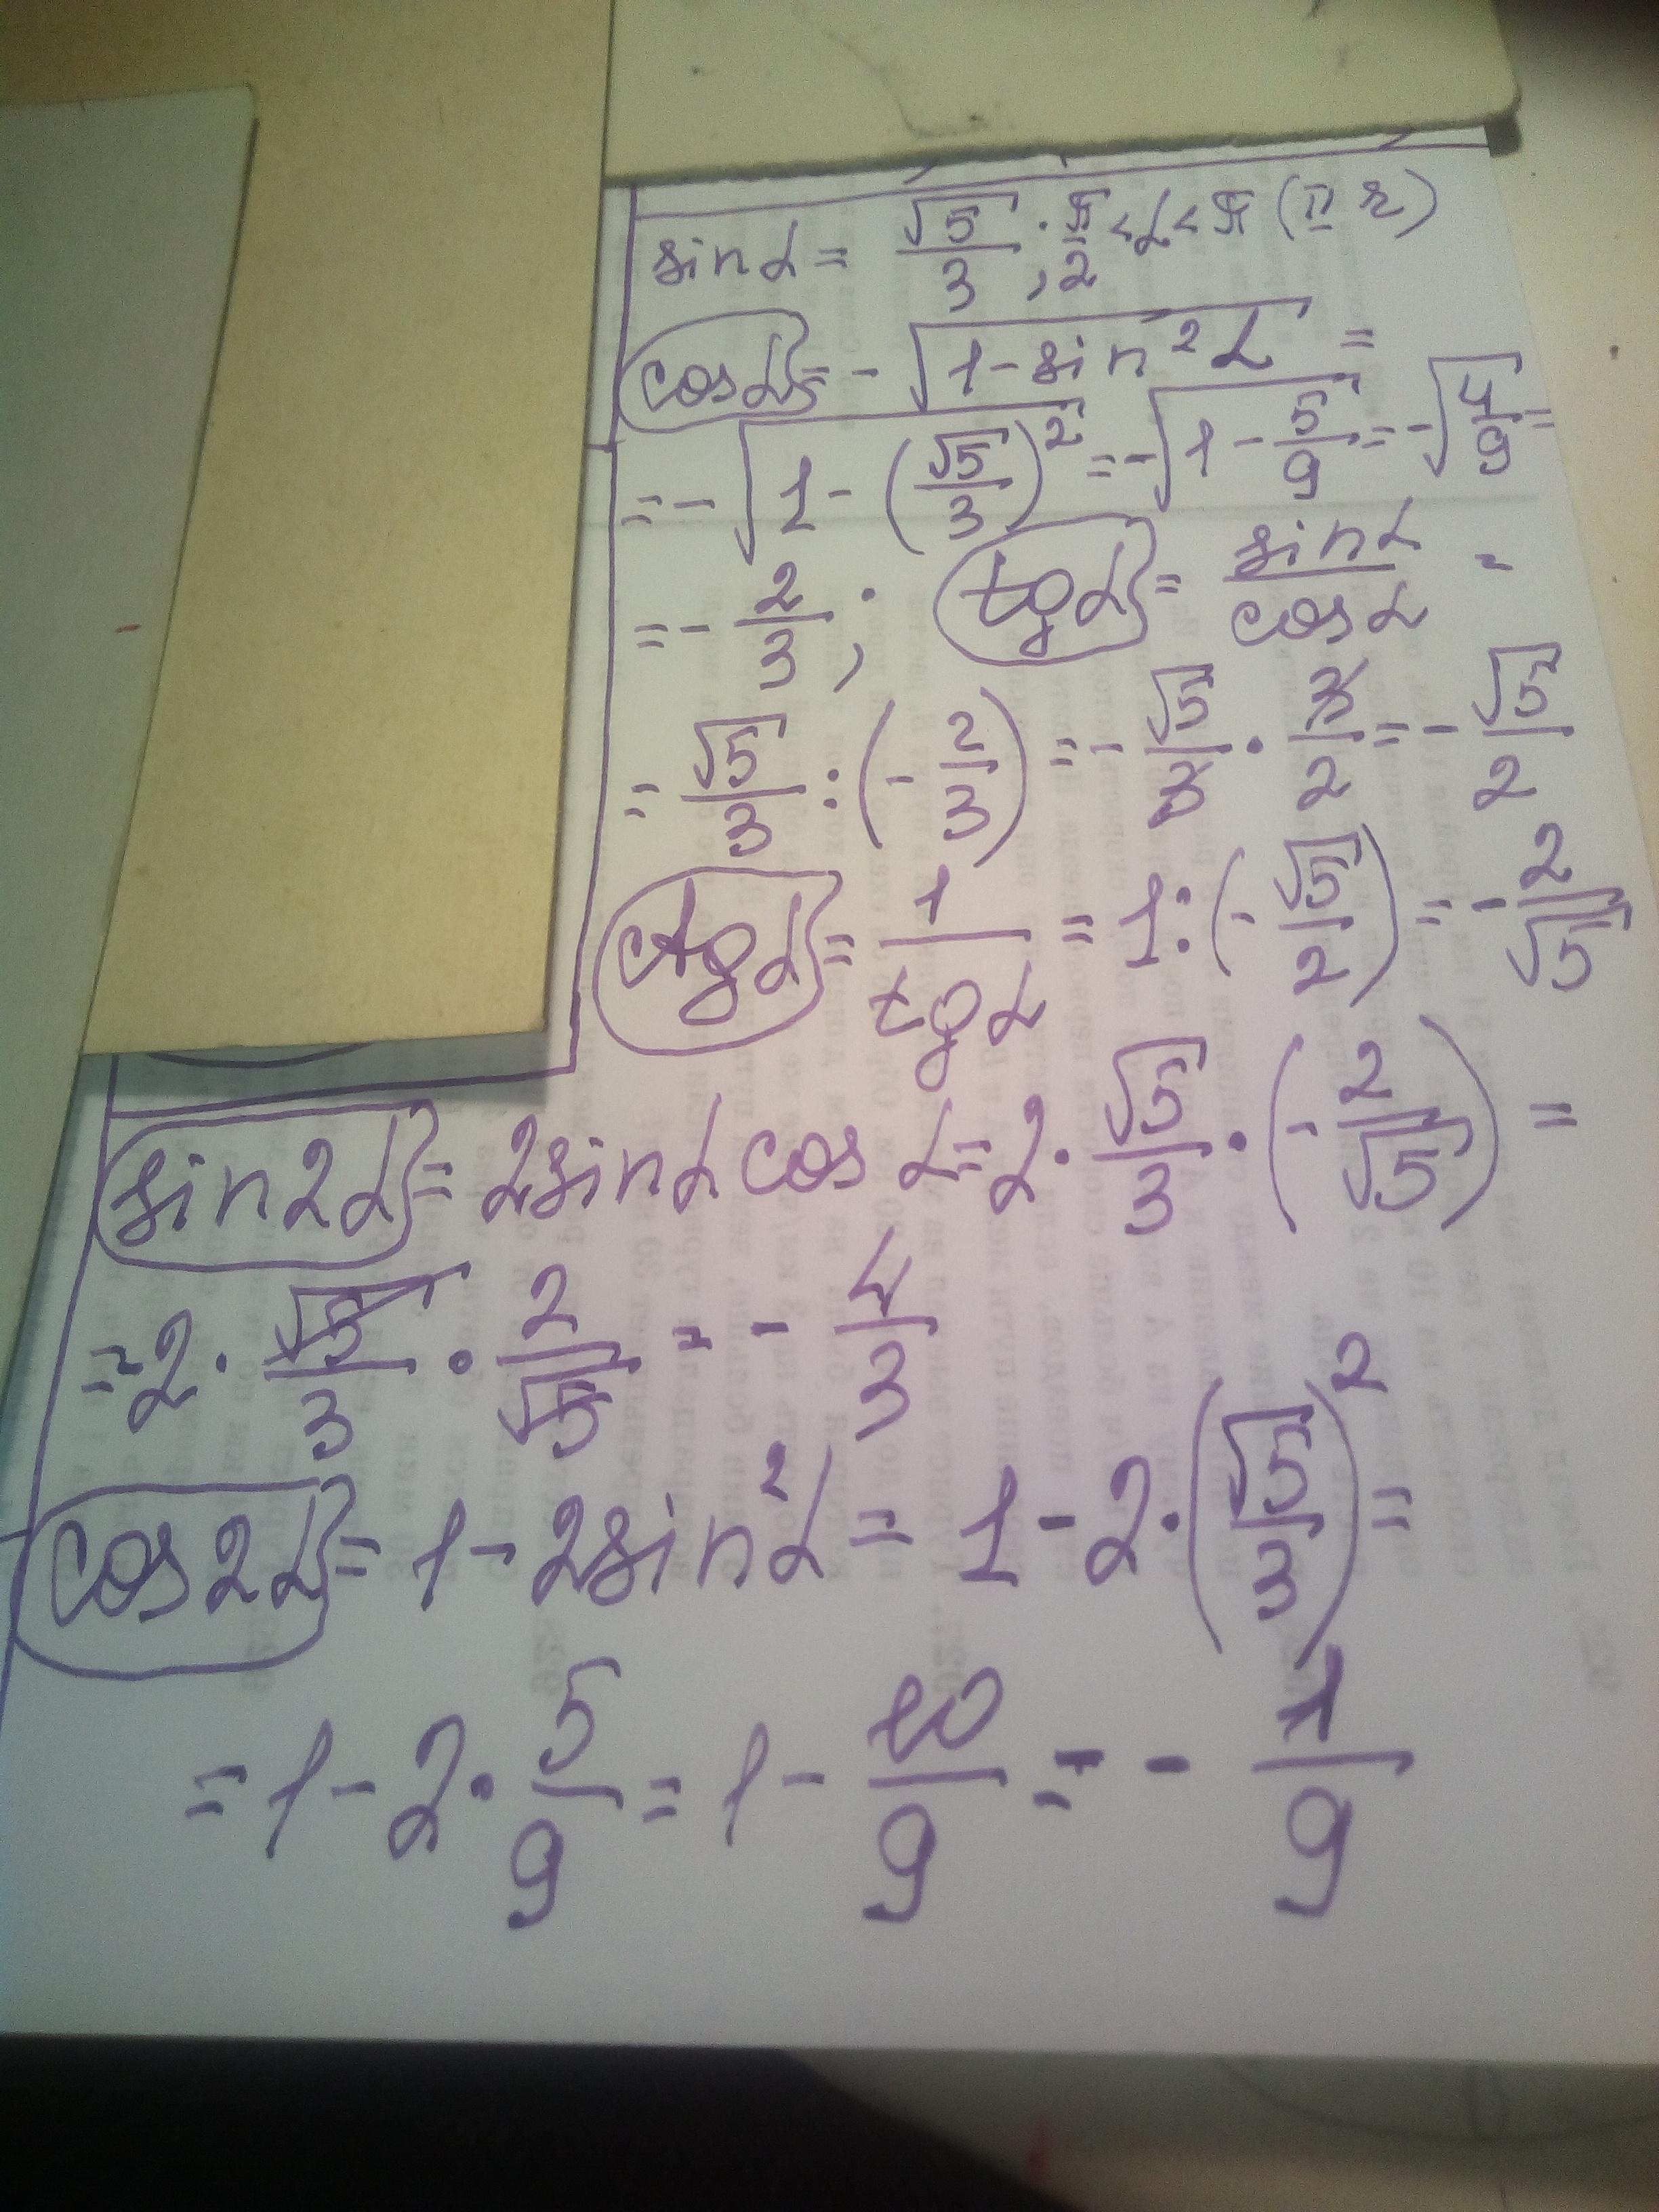 sin α = √5/3 ; π/2 < α < π (II г)
cos α = - √(1 - sin² α) =
= - √(1 - (√5/3)²) = - √(1 - 5/9) = - √(4/9) =
= - 2/3 ; tg α = sin α / cos α =
= √5/3 : (- 2/3) = - √5/3 · 3/2 = - √5/2
ctg α = 1/tg α = 1 : (- √5/2) = - 2/√5
sin 2α = 2 sin α cos α = 2 · √5/3 · (- 2/√5) =
= 2 · √5/3 · 2/√5 = - 4/3
cos 2α = 1 - 2 sin² α = 1 - 2 · (√5/3)² =
= 1 - 2 · 5/9 = 1 - 10/9 = - 1/9